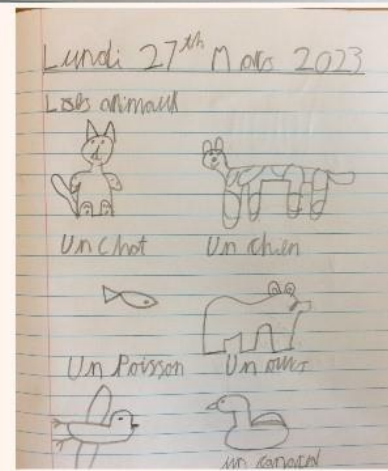 Lundi 27th Mars 2023
Les animaux
Un chat Un chien
Un Poisson Un ours
un canard